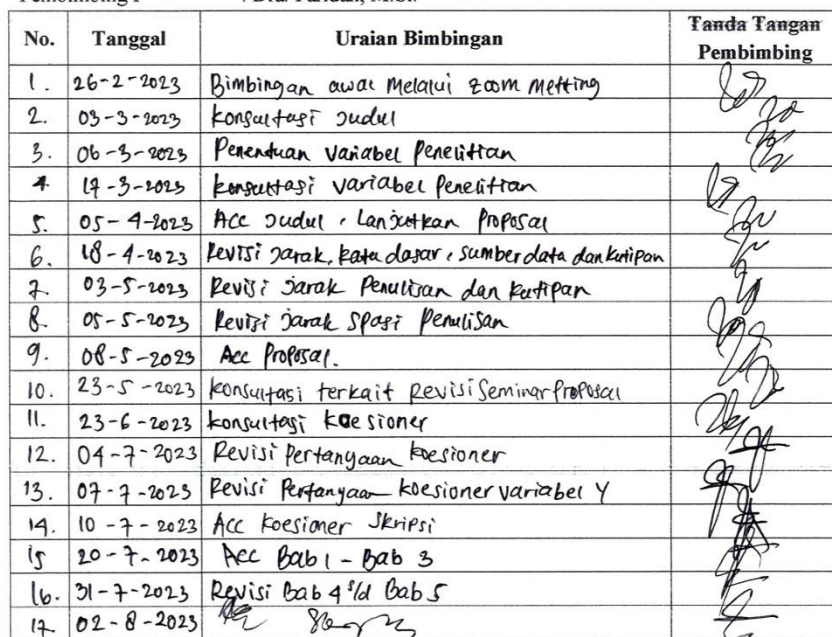 No. Tanggal Uraian Bimbingan Tanda Tangan Pembimbing
1. 26-2-2023 Bimbingan awal Melalui zoom Metting
2. 03-3-2023 Konsultasi Judul
3. 06-3-2023 Penentuan Variabel Penelitian
4. 17-3-2023 konsultasi variabel Penelitian
5. 05-4-2023 Acc Judul, Lanjutkan Proposal
6. 18-4-2023 Revisi Jarak, kata dasar, sumber data dan kutipan
7. 03-5-2023 Revisi Jarak Penulisan dan kutipan
8. 05-5-2023 Revisi jarak spasi Penulisan
9. 08-5-2023 Acc Proposal.
10. 23-5-2023 konsultasi terkait Revisi Seminar Proposal
11. 23-6-2023 konsultasi koesioner
12. 04-7-2023 Revisi Pertanyaan koesioner
13. 07-7-2023 Revisi Pertanyaan koesioner variabel Y
14. 10-7-2023 Acc koesioner Skripsi
15 20-7-2023 Acc Bab 1 - Bab 3
16. 31-7-2023 Revisi Bab 4 s/d Bab 5
17. 02-8-2023